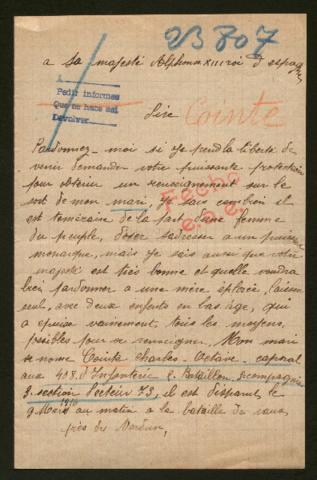 23807
a Sa majesté Alphonse XIII roi d'espagne
A
Pedir informes
Que se hace así
Devolver
Sire
Cointe
Pardonnez-moi si je prend la liberté de
venir demander votre puissante protection
pour obtenir un renseignement sur le
sort de mon mari, je sais combien il
est téméraire de la part d'une femme
du peuple, d'oser s'adresser a un puissant
monarque, mais je sais aussi que votre
majesté est très bonne et quelle voudra
bien pardonner a une mère éplorée, laissée
seul, avec deux enfants en bas age, qui
a épuisé vainement tous les moyens,
possibles pour se renseigner. Mon mari
se nomme Cointe Charles-Octave-caporal
aux 408. d'Infanterie 2. Bataillon 7. compagnie
3. section secteur 73, il est disparut le
9 Mars 1916 au matin a la bataille de vaux,
près de Verdun,
Fecho